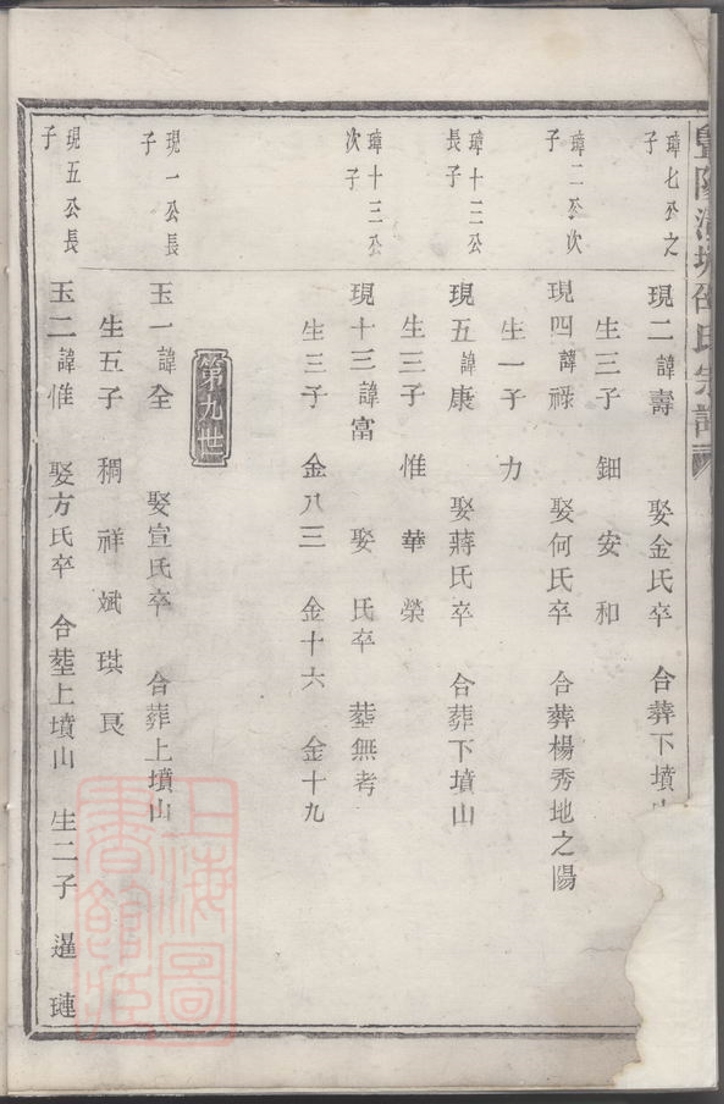 暨陽 邵氏宗譜
璋七公之子
現二諱壽 娶金氏卒 合葬下墳山
生三子 鈿 安 和
璋二公次子
現四諱祿 娶何氏卒 合葬楊秀地之陽
生一子 力
璋十三公長子
現五諱康 娶蔣氏卒 合葬下墳山
生三子 惟 華 榮
璋十三公次子
現十三諱富 娶 氏卒 塟無考
生三子 金八三 金十六 金十九
第九世
現一公長子
玉一諱全 娶宣氏卒 合葬上墳山
生五子 稠 祥 斌 琪 良
現五公長子
玉二諱惟 娶方氏卒 合塟上墳山 生二子 暹 璉
上海圖書館藏